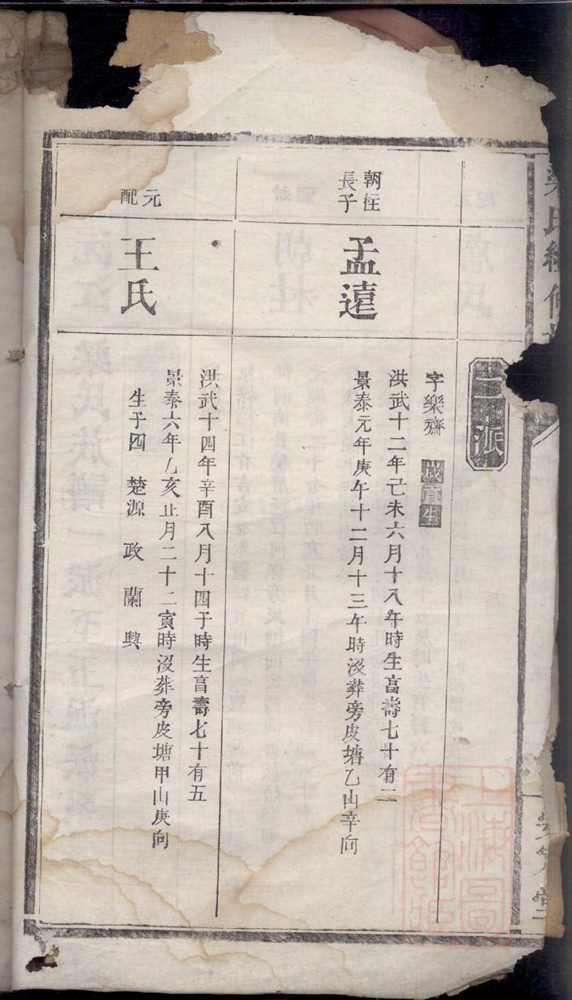 二派
朝柱
長子
孟遠
字樂齋 歲貢生
洪武十二年己未六月十八午時生享壽七十有二
景泰元年庚午十二月十三午時沒葬旁皮塘乙山辛向
元
配
王氏
洪武十四年辛酉八月十四子時生享壽七十有五
景泰六年乙亥正月二十二寅時沒葬旁皮塘甲山庚向
生子四 楚源 政 蘭 興